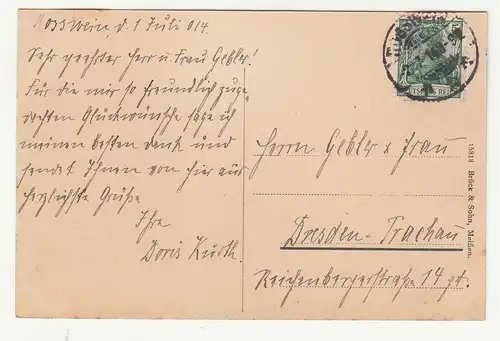 Rosswein, d. 1 Juli 014.
Sehr geehrter Herr u. Frau Gebler!
Für die mir so freundlich zuge-
dachten Glückwünsche sage ich
meinen besten Dank und
sendet Ihnen von hier aus
herzlichste Grüße
Ihre
Doris Kurth.
DEUTSCHES REICH
Herrn Gebler & Frau
Dresden-Trachau
Reichenbergerstraße 14 pt.
15813 Brück & Sohn, Meißen.